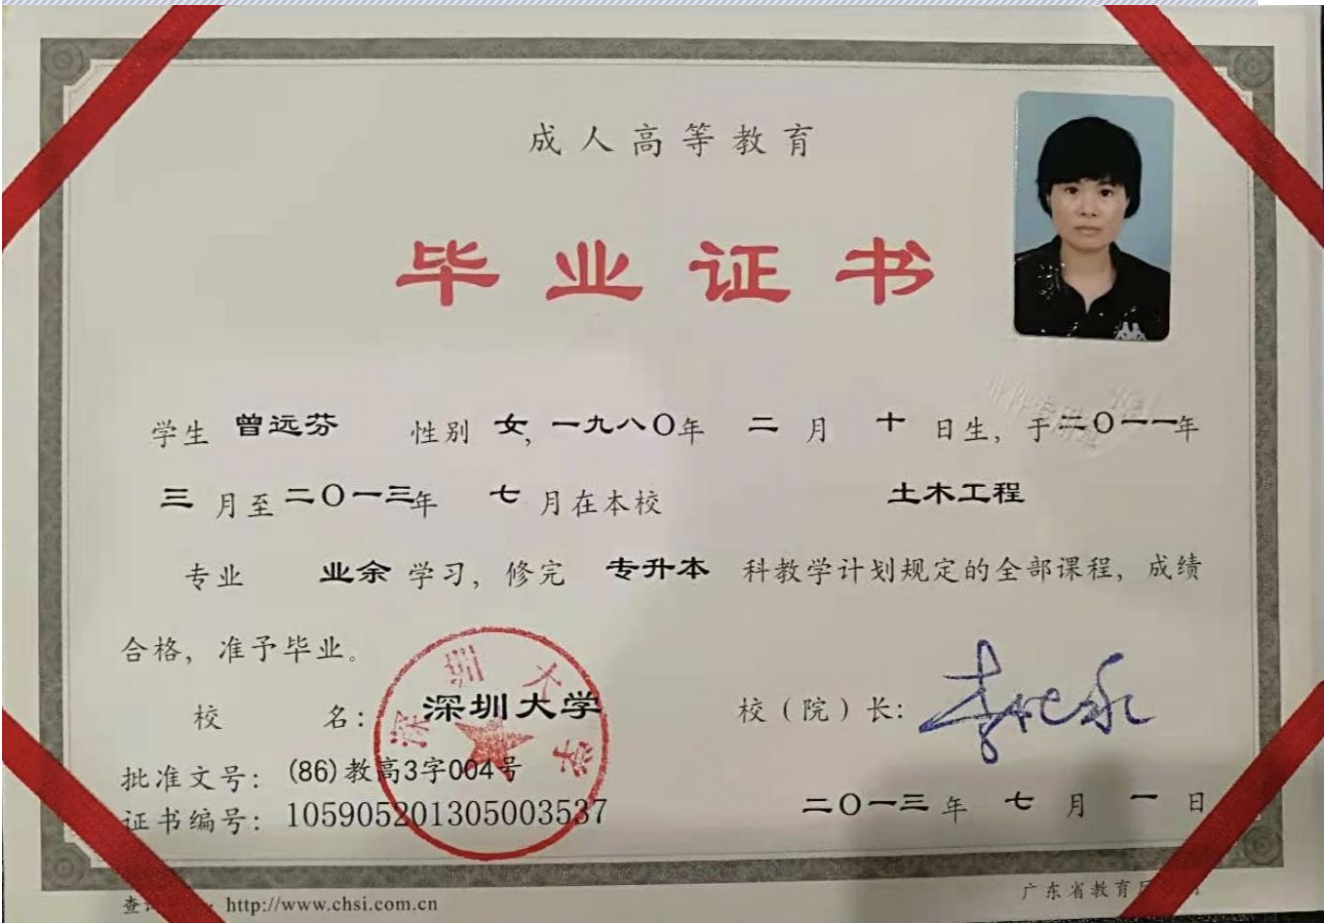 成人高等教育
毕业证书
学生 曾远芬 性别 女, 一九八〇年 二 月 十 日生, 于二〇一一年
三 月至二〇一三年 七 月在本校 土木工程
专业 业余 学习, 修完 专升本 科教学计划规定的全部课程, 成绩
合格, 准予毕业。
深圳大学
校 名: 深圳大学
校(院)长:
批准文号: (86)教高3字004号
证书编号: 105905201305003537
二〇一三 年 七 月 一 日
查 http://www.chsi.com.cn
广东省教育厅